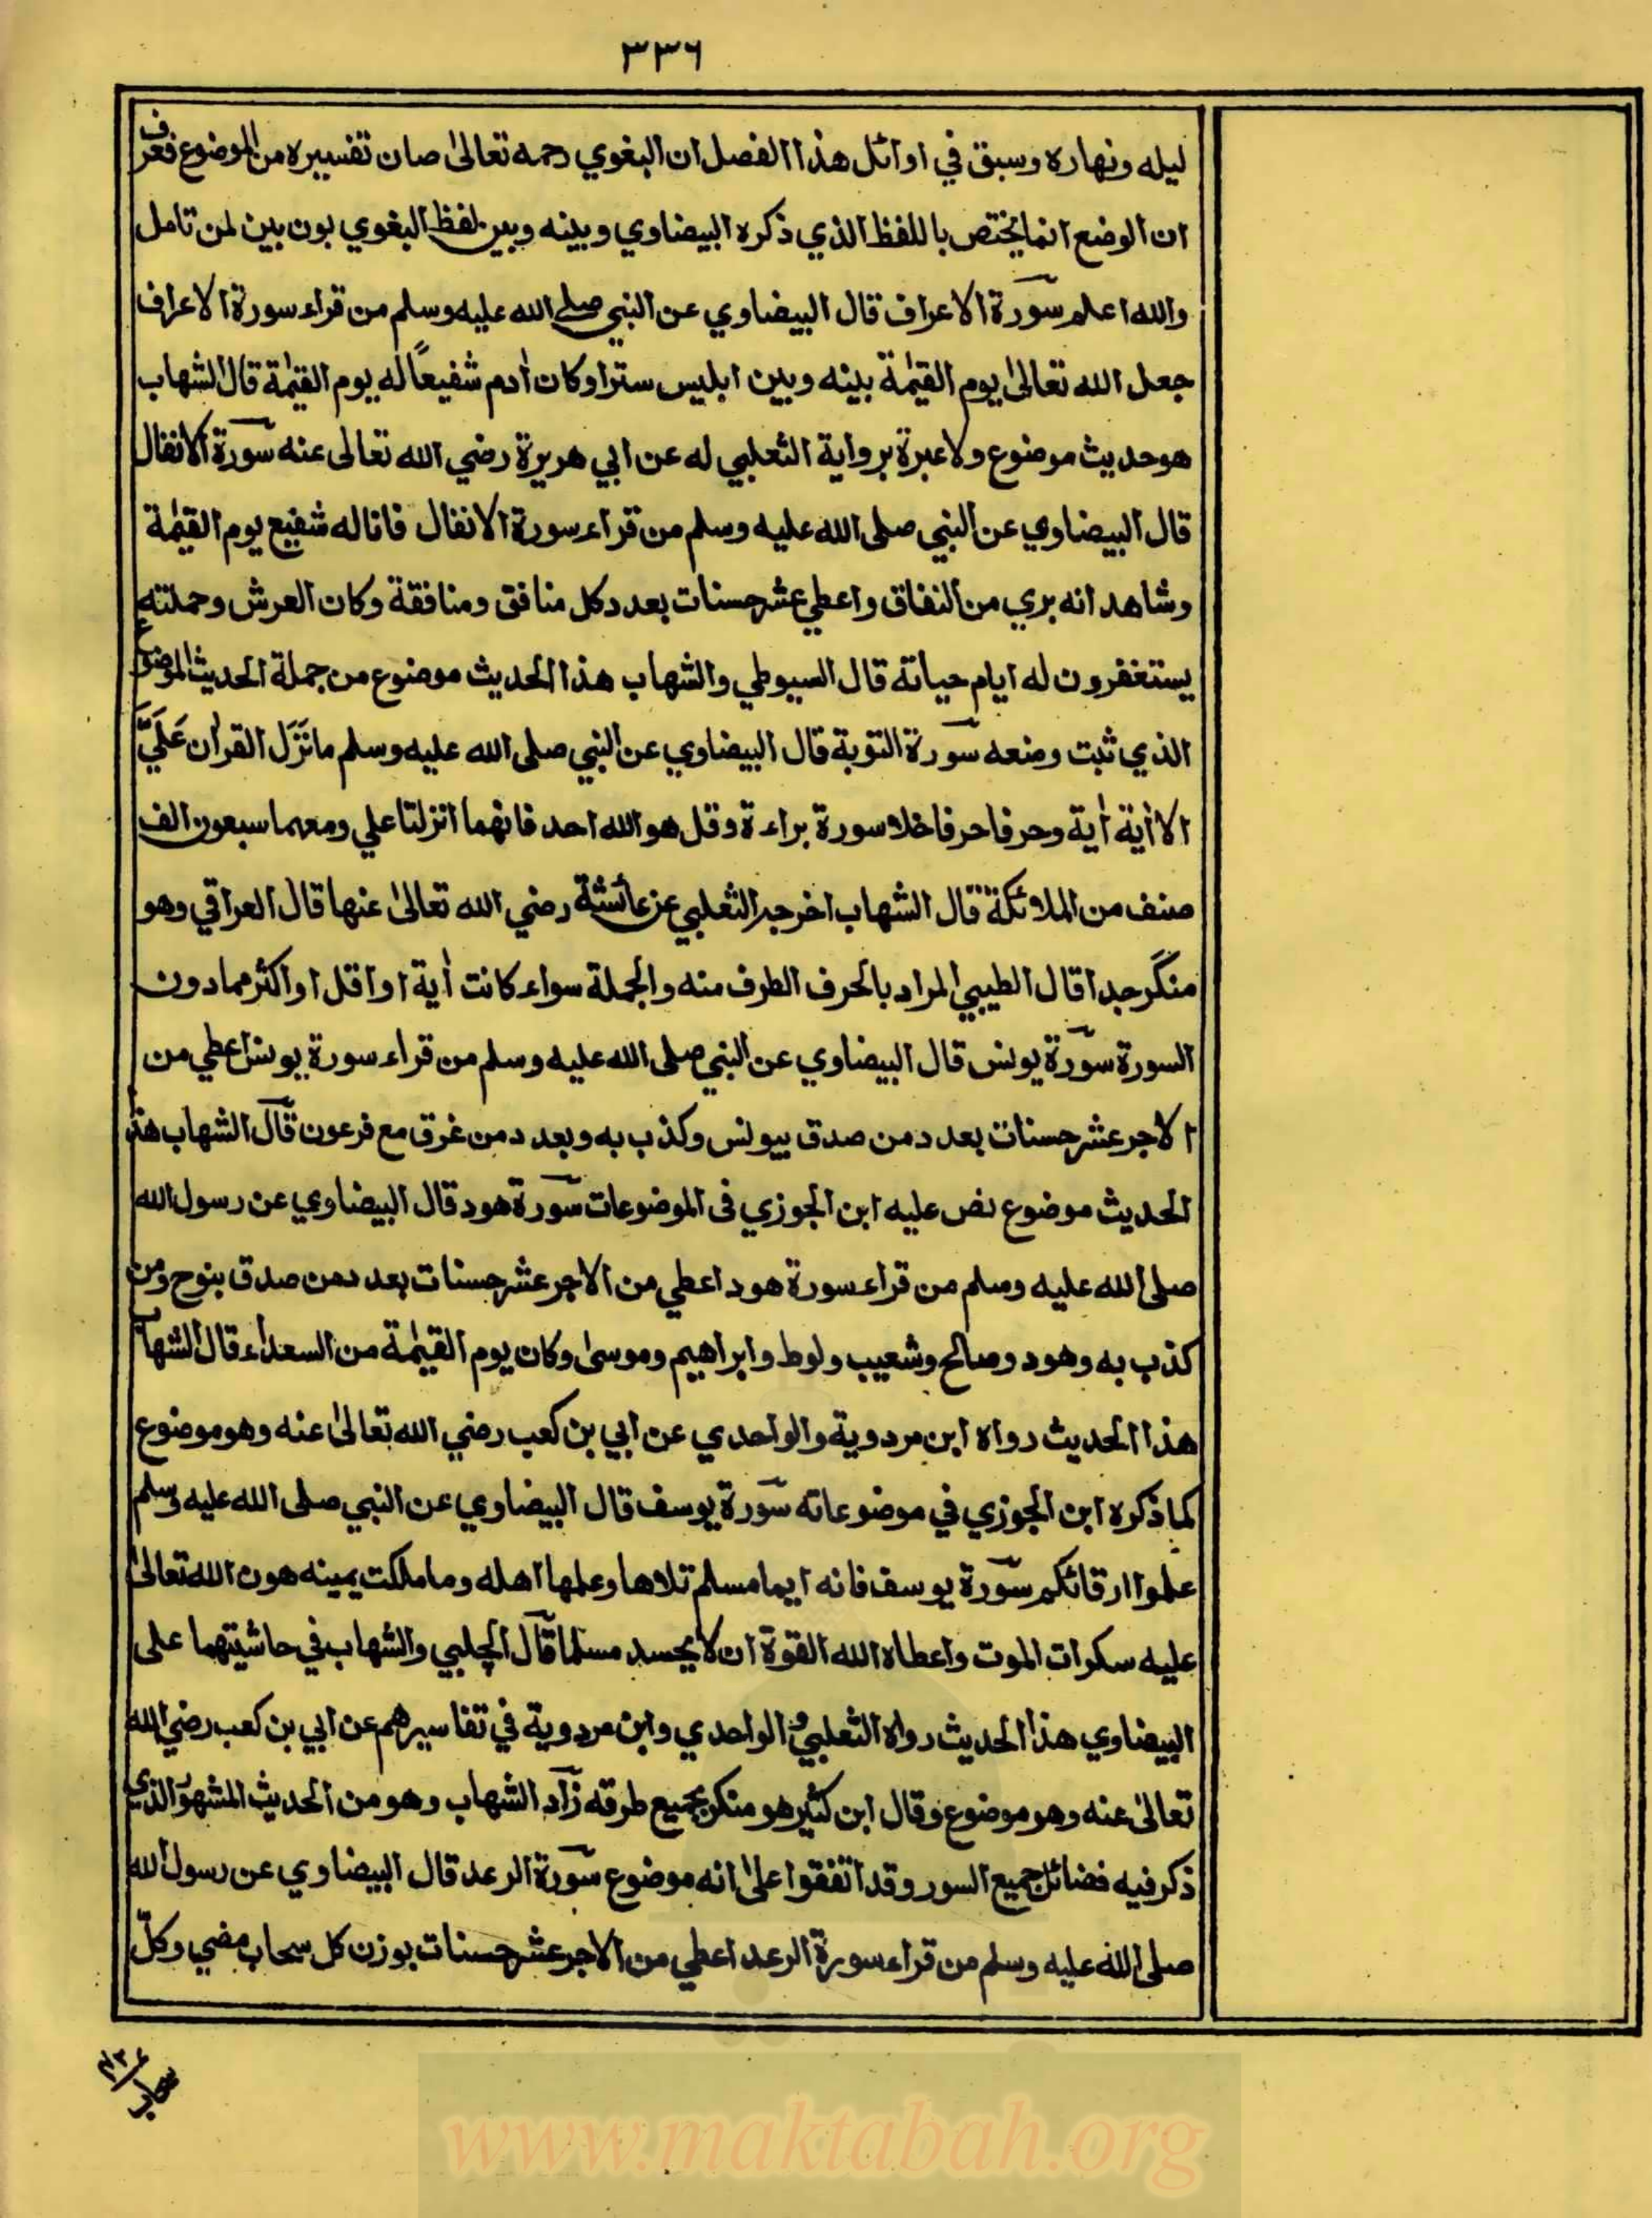 ٣٣٦
ليله ونهاره وسبق في اوائل هذا الفصل ان البغوي رحمه تعالىٰ صان تفسيره من الموضوع فعرف
ان الوضع انما يختص باللفظ الذي ذكره البيضاوي وبينه وبين لفظ البغوي بون بين لمن تامل
والله اعلم سورة الاعراف قال البيضاوي عن النبي صلى الله عليه وسلم من قراء سورة الاعراف
جعل الله تعالىٰ يوم القيٰمة بينه وبين ابليس سترا وكان اٰدم شفيعاً له يوم القيٰمة قال الشهاب
هو حديث موضوع ولا عبرة برواية الثعلبي له عن ابي هريرة رضي الله تعالى عنه سورة الانفال
قال البيضاوي عن النبي صلى الله عليه وسلم من قراء سورة الانفال فانا له شفيع يوم القيٰمة
وشاهد انه بري من النفاق واعطي عشر حسنات بعدد كل منافق ومنافقة وكان العرش وحملته
يستغفرون له ايام حياته قال السيوطي والشهاب هذا الحديث موضوع من جملة الحديث الموضوع
الذي ثبت وضعه سورة التوبة قال البيضاوي عن النبي صلى الله عليه وسلم ما نَزَل القراٰن عَلَيَّ
الا اٰية اٰية وحرفا حرفا خلا سورة براءة وقل هو الله احد فانهما انزلتا علي ومعهما سبعون الف
صنف من الملائكة قال الشهاب اخرجه الثعلبي عن عائشة رضي الله تعالىٰ عنها قال العراقي وهو
منكر جدا قال الطيبي المراد بالحرف الطرف منه والجملة سواء كانت اٰية او اقل او اكثر مما دون
السورة سورة يونس قال البيضاوي عن النبي صلى الله عليه وسلم من قراء سورة يونس اعطي من
الاجر عشر حسنات بعدد من صدق بيونس وكذب به وبعدد من غرق مع فرعون قال الشهاب هذا
الحديث موضوع نص عليه ابن الجوزي فى الموضوعات سورة هود قال البيضاوي عن رسول الله
صلى الله عليه وسلم من قراء سورة هود اعطي من الاجر عشر حسنات بعدد من صدق بنوح ومن
كذب به وهود وصالح وشعيب ولوط وابراهيم وموسىٰ وكان يوم القيٰمة من السعداء قال الشهاب
هذا الحديث رواه ابن مردوية والواحدي عن ابي بن كعب رضي الله تعالىٰ عنه وهو موضوع
كما ذكره ابن الجوزي في موضوعاته سورة يوسف قال البيضاوي عن النبي صلى الله عليه وسلم
علموا ارقائكم سورة يوسف فانه ايما مسلم تلاها وعلمها اهله وما ملكت يمينه هون الله تعالىٰ
عليه سكرات الموت واعطاه الله القوة ان لا يحسد مسلما قال الچلبي والشهاب في حاشيتهما على
البيضاوي هذا الحديث رواه الثعلبي والواحدي وابن مردوية في تفاسيرهم عن ابي بن كعب رضي الله
تعالىٰ عنه وهو موضوع وقال ابن كثير هو منكر بجميع طرقه زاد الشهاب وهو من الحديث المشهور الذي
ذكر فيه فضائل جميع السور وقد اتفقوا علىٰ انه موضوع سورة الرعد قال البيضاوي عن رسول الله
صلى الله عليه وسلم من قراء سورة الرعد اعطي من الاجر عشر حسنات بوزن كل سحاب مضي وكلّ
www.maktabah.org